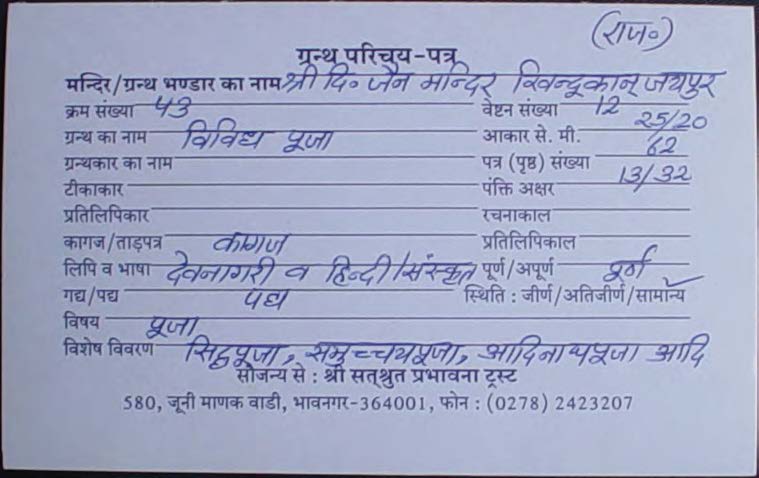 (राज०)
ग्रन्थ परिचय-पत्र
मन्दिर/ग्रन्थ भण्डार का नाम श्री दि० जैन मन्दिर खिन्दूकान् जयपुर
क्रम संख्या 43 वेष्टन संख्या 12
ग्रन्थ का नाम विविध पूजा आकार से. मी. 25/20
ग्रन्थकार का नाम पत्र (पृष्ठ) संख्या 62
टीकाकार पंक्ति अक्षर 13/32
प्रतिलिपिकार रचनाकाल
कागज/ताड़पत्र कागज प्रतिलिपिकाल
लिपि व भाषा देवनागरी व हिन्दी/संस्कृत पूर्ण/अपूर्ण पूर्ण
गद्य/पद्य पद्य स्थिति : जीर्ण/अतिजीर्ण/सामान्य ✓
विषय पूजा
विशेष विवरण सिद्धपूजा, समुच्चयपूजा, आदिनाथपूजा आदि
सौजन्य से : श्री सत्श्रुत प्रभावना ट्रस्ट
580, जूनी माणक वाडी, भावनगर-364001, फोन : (0278) 2423207